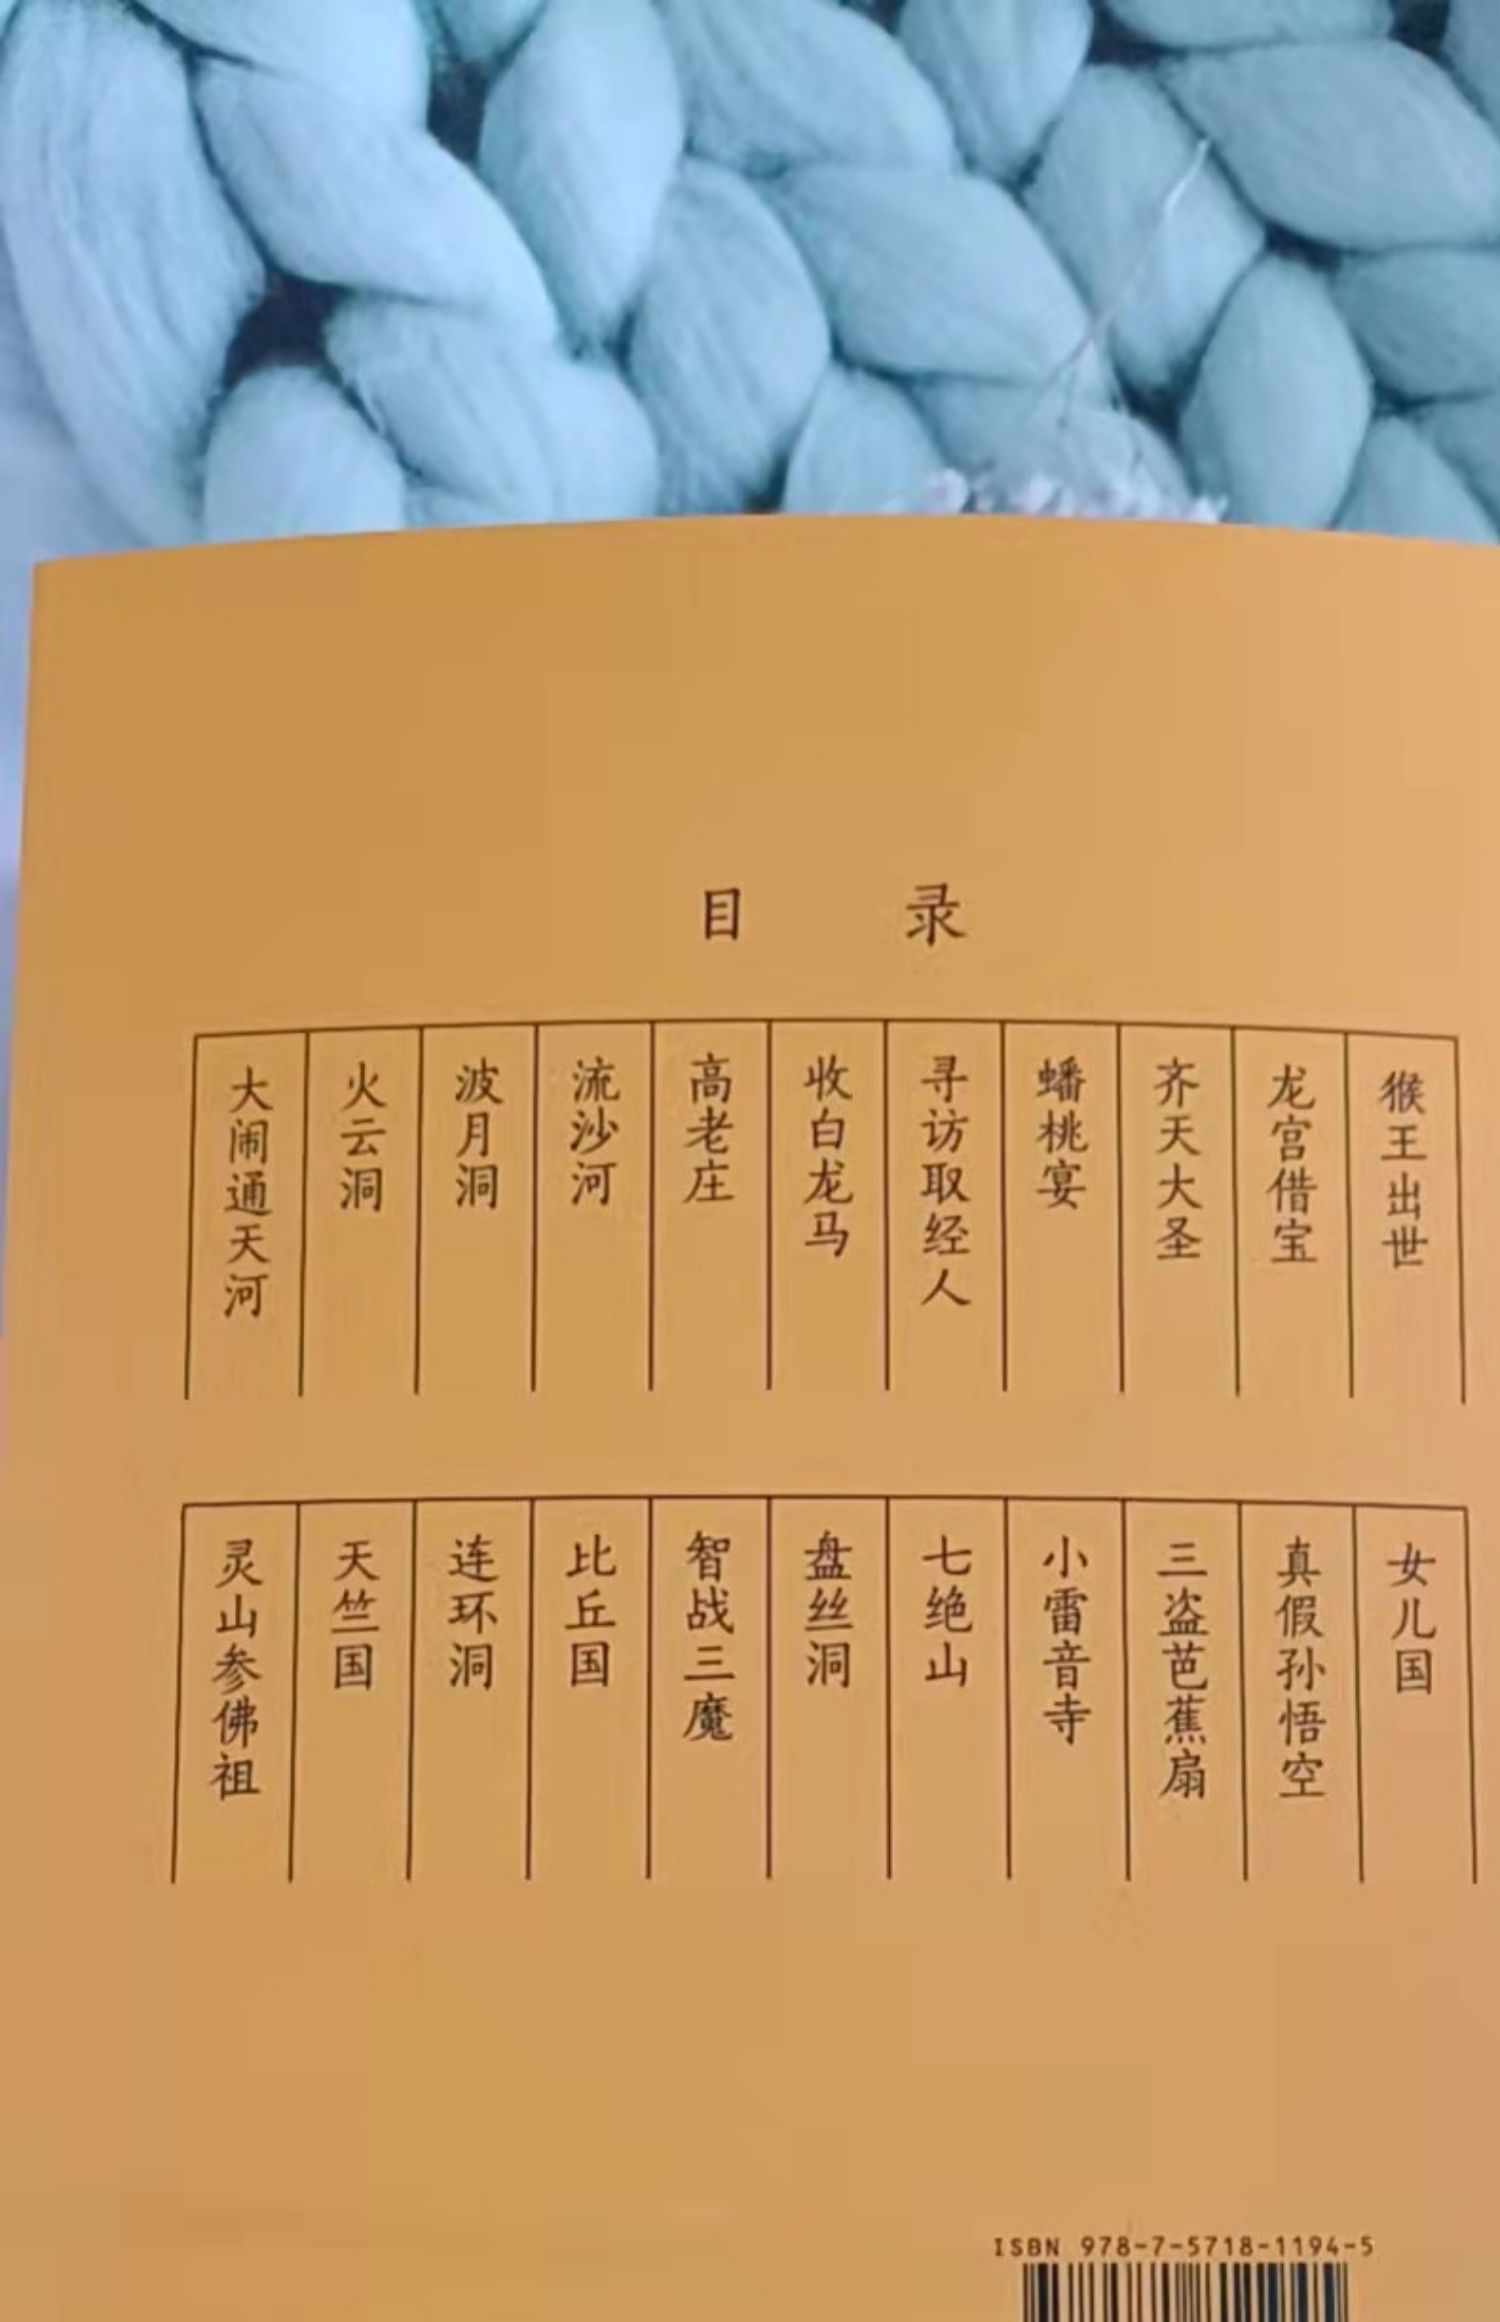 目 录
猴王出世
龙宫借宝
齐天大圣
蟠桃宴
寻访取经人
收白龙马
高老庄
流沙河
波月洞
火云洞
大闹通天河
女儿国
真假孙悟空
三盗芭蕉扇
小雷音寺
七绝山
盘丝洞
智战三魔
比丘国
连环洞
天竺国
灵山参佛祖
ISBN 978-7-5718-1194-5